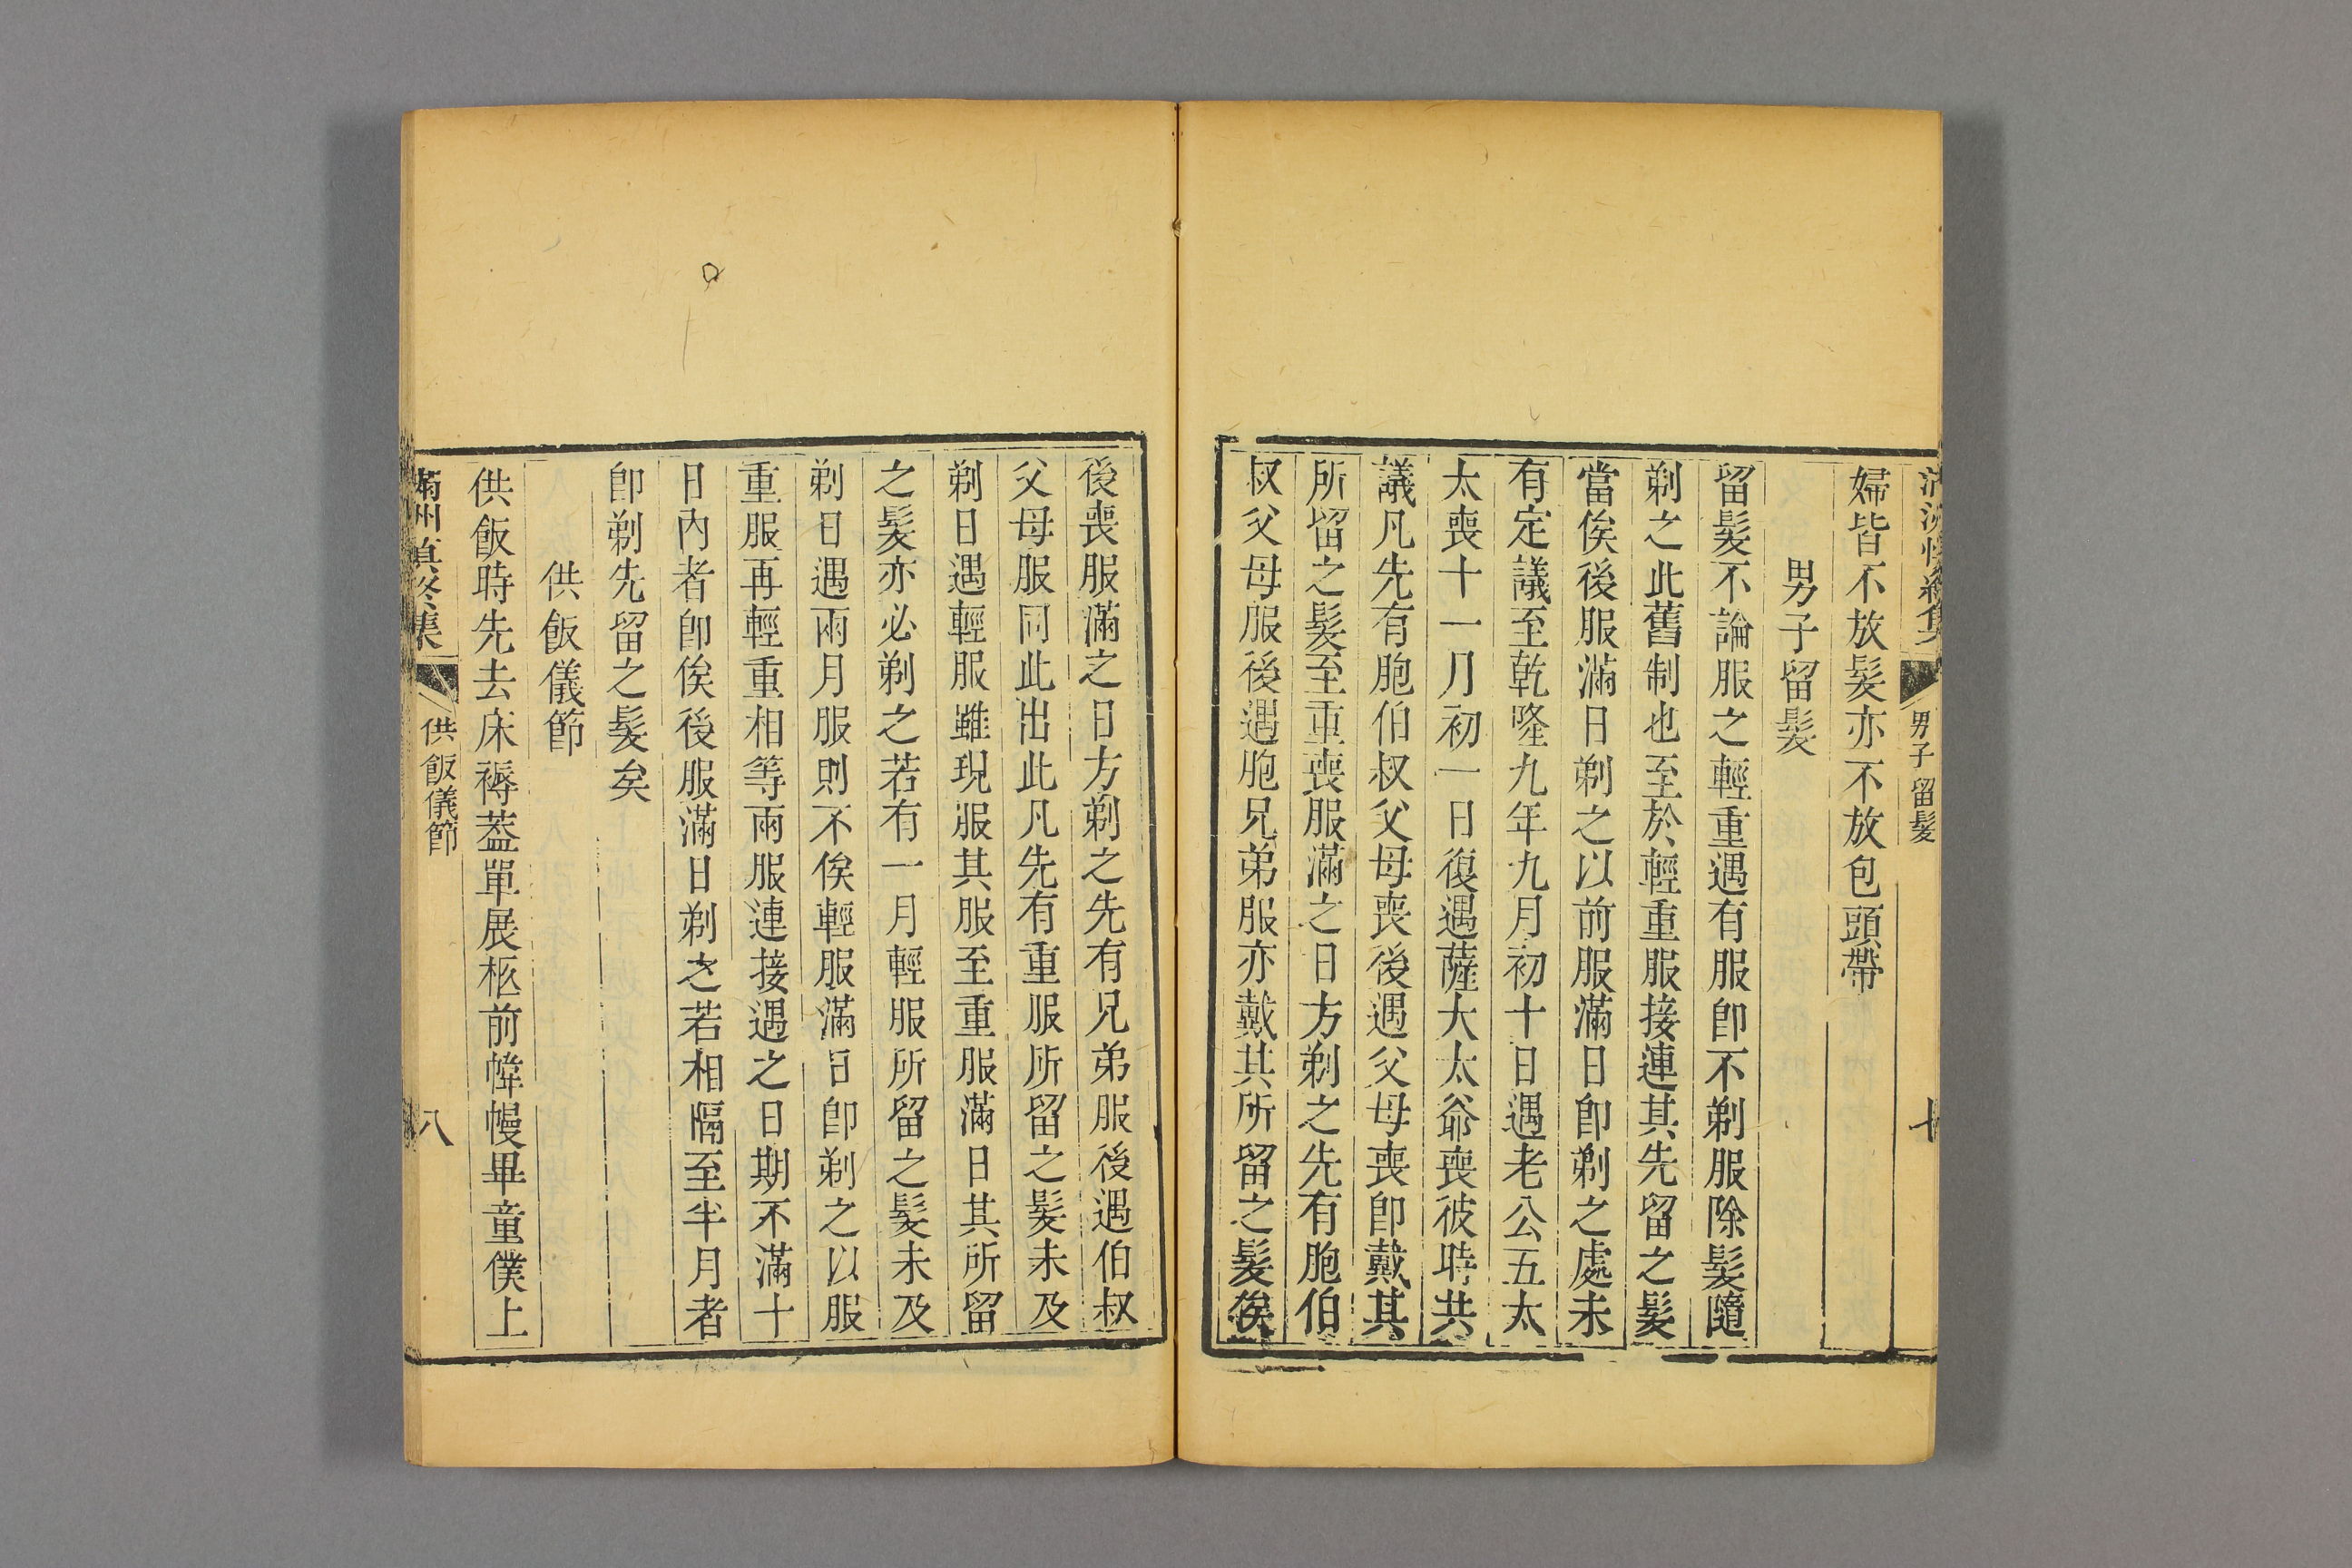 男子留髮
婦皆不放髮亦不放包頭帶
男子留髮
留髮不論服之輕重遇有服卽不剃服除髮隨
剃之此舊制也至於輕重服接連其先留之髮
當俟後服滿日剃之以前服滿日卽剃之處未
有定議至乾隆九年九月初十日遇老公五太
太喪十一月初一日復遇薩大太爺喪彼時共
議凡先有胞伯叔父母喪後遇父母喪卽戴其
所留之髮至重喪服滿之日方剃之先有胞伯
叔父母服後遇胞兄弟服亦戴其所留之髮俟
後喪服滿之日方剃之先有兄弟服後遇伯叔
父母服同此出此凡先有重服所留之髮未及
剃日遇輕服雖現服其服至重服滿日其所留
之髮亦必剃之若有一月輕服所留之髮未及
剃日遇兩月服則不俟輕服滿日卽剃之以服
重服再輕重相等兩服連接遇之日期不滿十
日內者卽俟後服滿日剃之若相隔至半月者
卽剃先留之髮矣
供飯儀節
供飯時先去床褥蓋單展柩前幃幔畢童僕上
滿州慎終集 供飯儀節 八